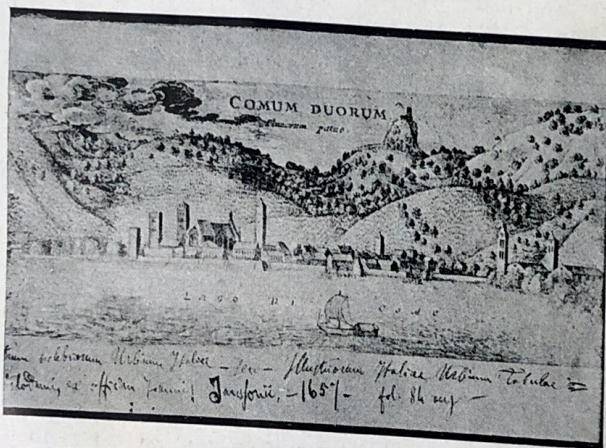 COMUM DUORUM
patria.
LAGO DI COMO
Urbium Italiae - seu - Illustriorum Italiae Urbium Tabulae =
ex officina Joannis Janssonii, - 1657 - fol. 84